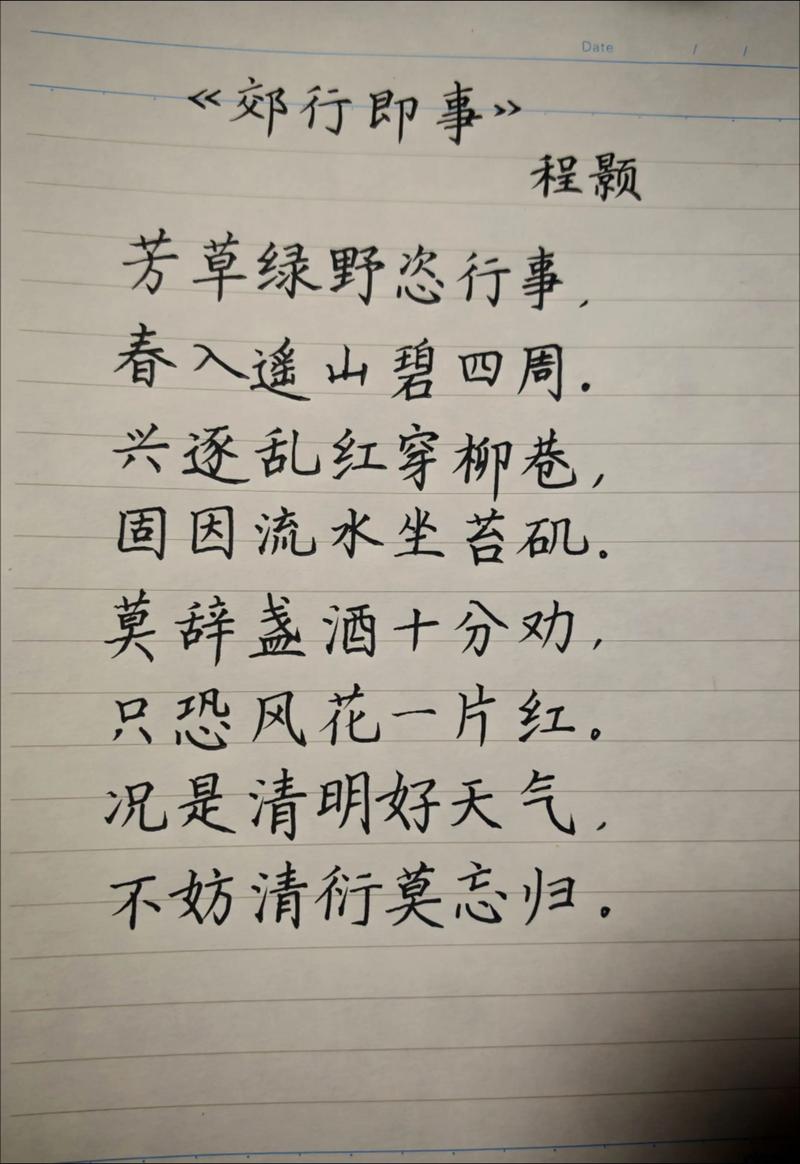 Date / /
《郊行即事》
程颢
芳草绿野恣行事,
春入遥山碧四周.
兴逐乱红穿柳巷,
固因流水坐苔矶。
莫辞盏酒十分劝,
只恐风花一片红。
况是清明好天气,
不妨清衍莫忘归.